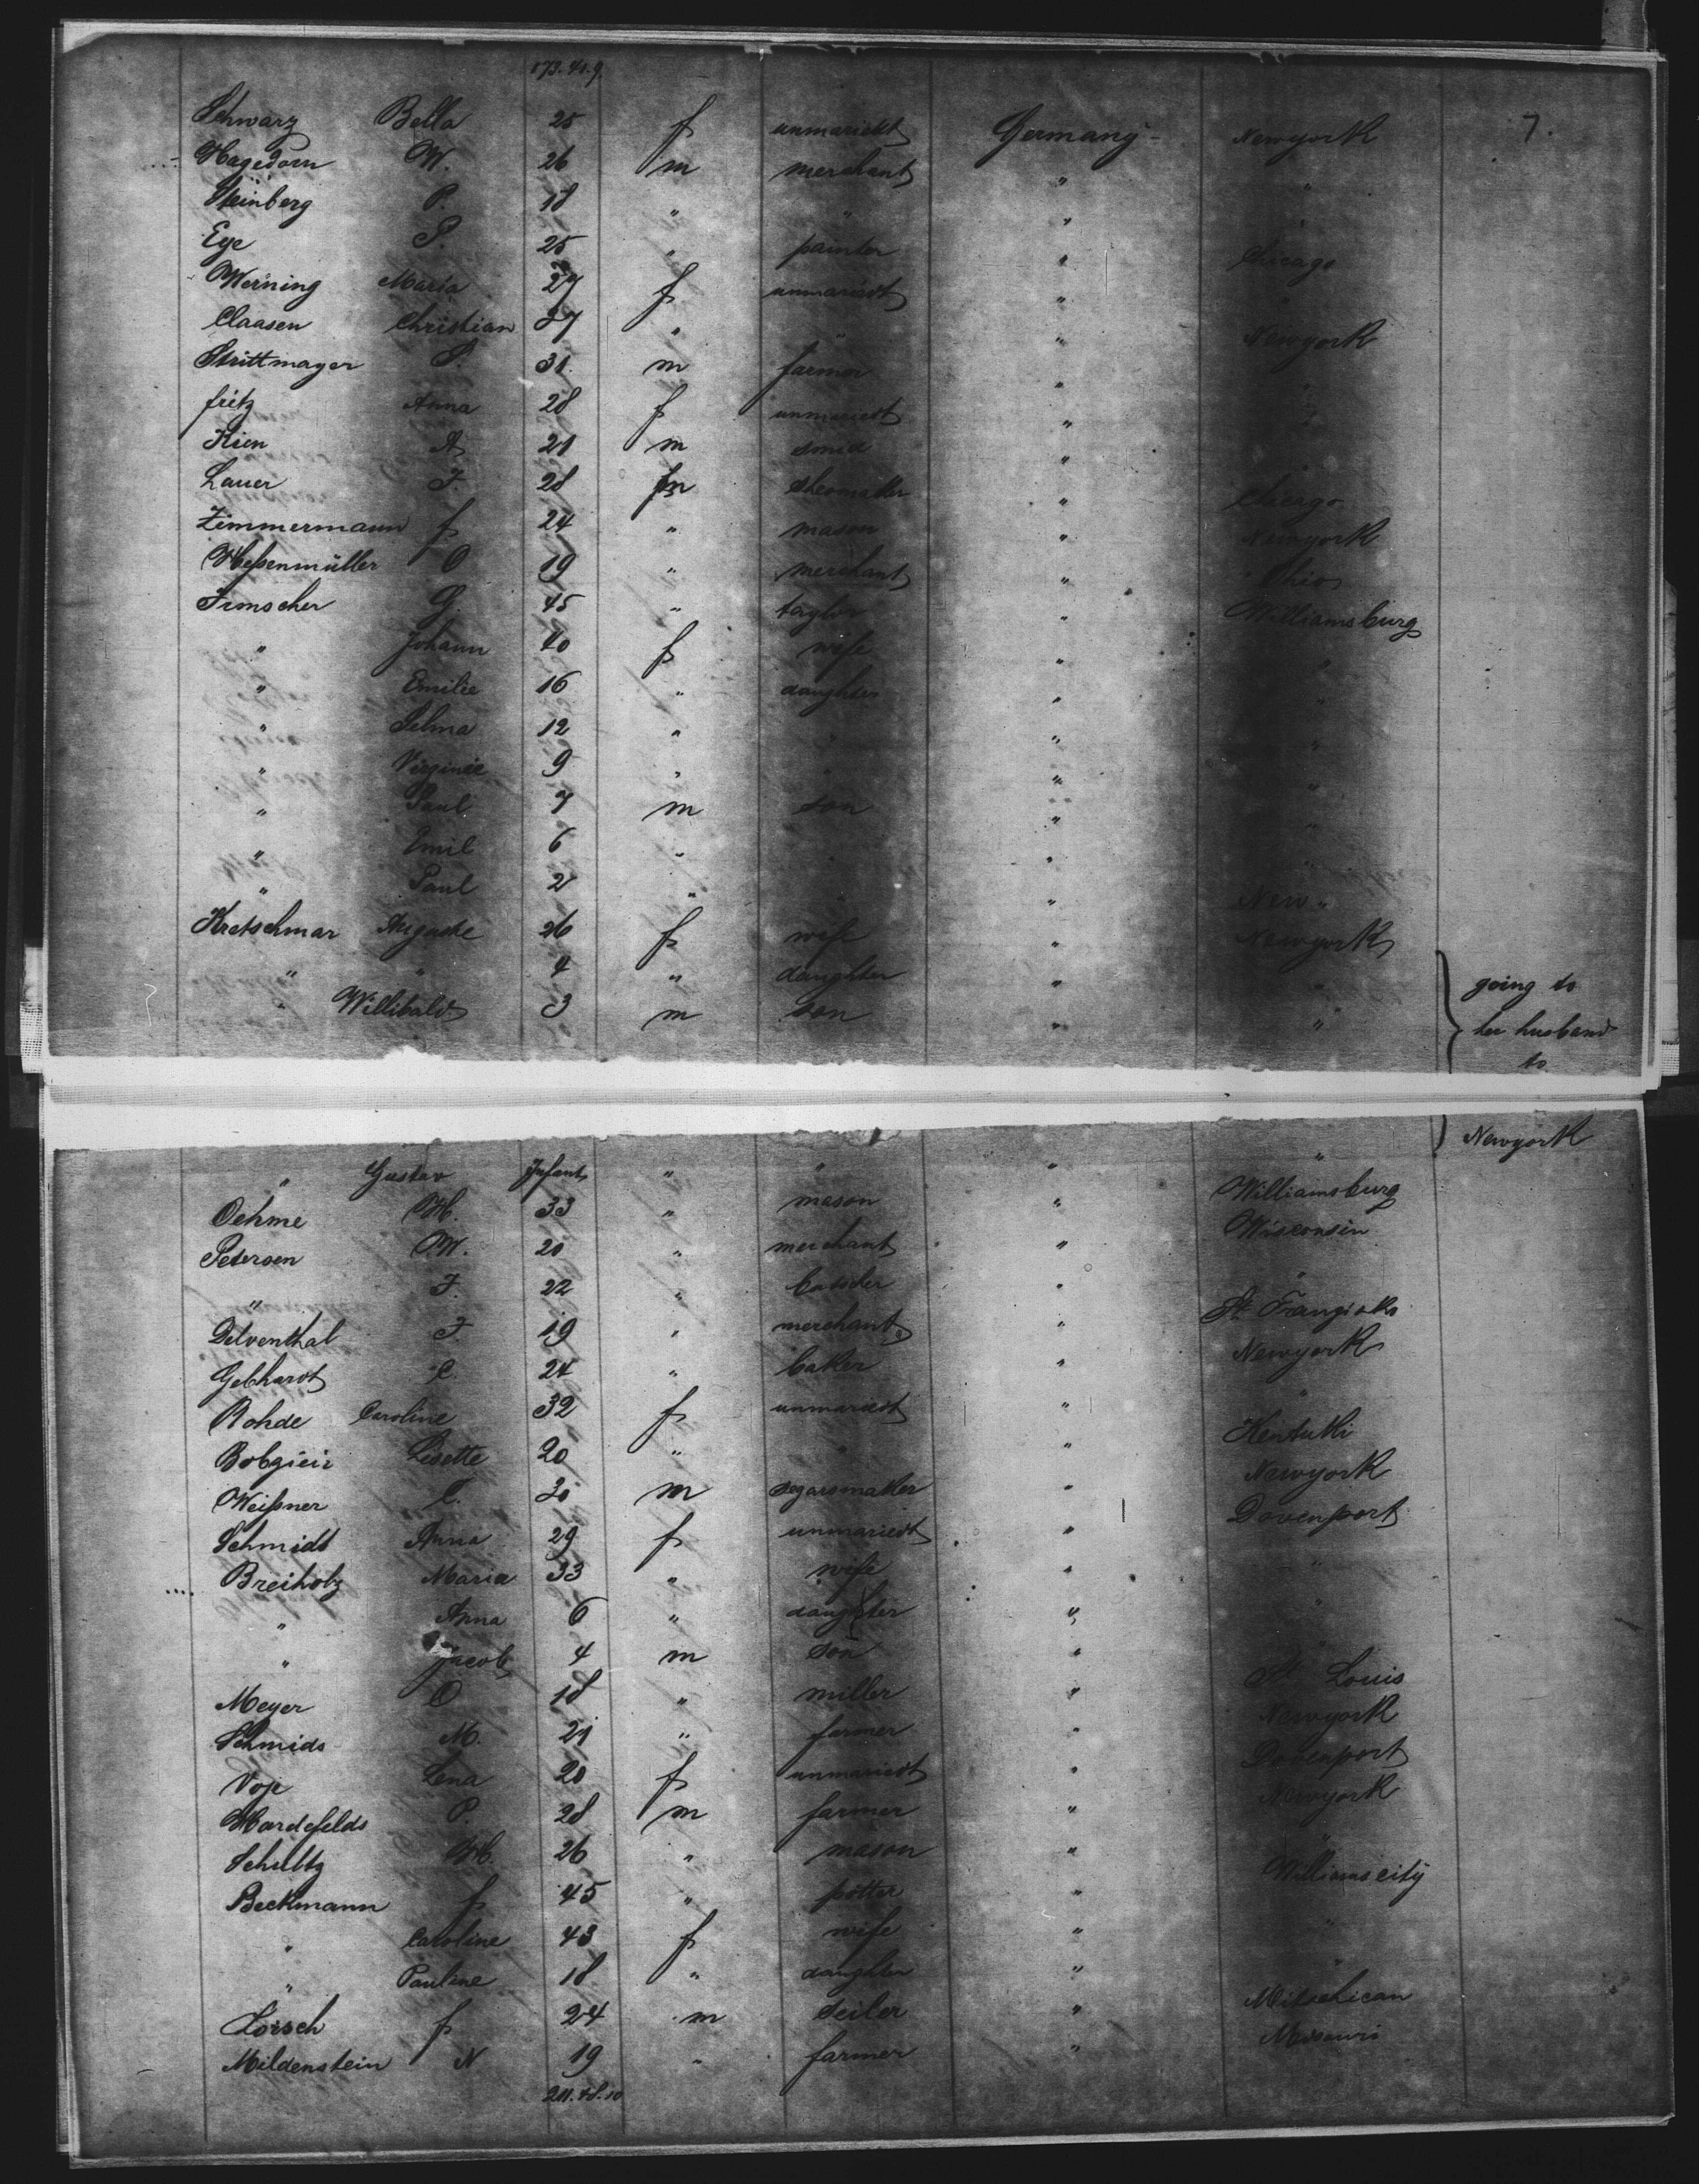 173. 41. 9.
Schwarz Bella 25 f unmariedt Germany - Newyork 7.
Hagedorn W. 26 m merchant " "
Steinberg P. 18 " " " "
Eye P. 25 " painter " Chicago
Werning Maria 27 f unmariedt " "
Claasen Christian 27 " " " Newyork
Strittmayer S. 31. m farmer " "
fritz Anna 28 f unmariedt " "
Kien A 21 m smid " "
Lauer F. 28 m shoemaker " Chicago
Zimmermann f 24 " mason " Newyork
Heßenmüller O 19 " merchant " Ohio
Irmscher G. 45 " taylor " Williamsburg
" Johann 40 f wife " "
" Emilie 16 " daughter " "
" Selma 12 " " " "
" Virginie 9 " " " "
" Paul 7 m son " "
" Emil 6 " " " "
" Paul 2 " " " New "
Kretschmar Auguste 26 f wife " Newyork
" " 4 " daughter " " going to
" Willibald 3 m son " " her husband
to
Newyork
" Gustav Infant " " " "
Oehme H. 33 " mason " Williamsburg
Petersen W. 20 " merchant " Wisconsin
" F. 22 " butscher " "
Delventhal F 19 " merchant " St.
Gebhardt C. 24 " baker " Newyork
Rohde Caroline 32 f unmariedt " "
Lisette 20 " " " Kentukki
Weißner C. 30 m segarsmaker " Newyork
Schmidt Anna 29 f unmariedt " Davenport
Breiholz Maria 33 " wife " "
" Anna 6 " daughter " "
" Jacob 4 m son " "
Meyer O 18 " miller " St Louis
Schmidt M. 21 " farmer " Newyork
Voje Lena 20 f unmariedt " Davenport
P. 28 m farmer " Newyork
Schultz H. 26 " mason " "
Beckmann f 45 " potter " Williamscity
" Caroline 43 f wife " "
" Pauline 18 " daughter " "
Lorsch f 24 m seiler " Mitschican
Mildenstein N 19 " farmer " Missouri
211. 48. 10